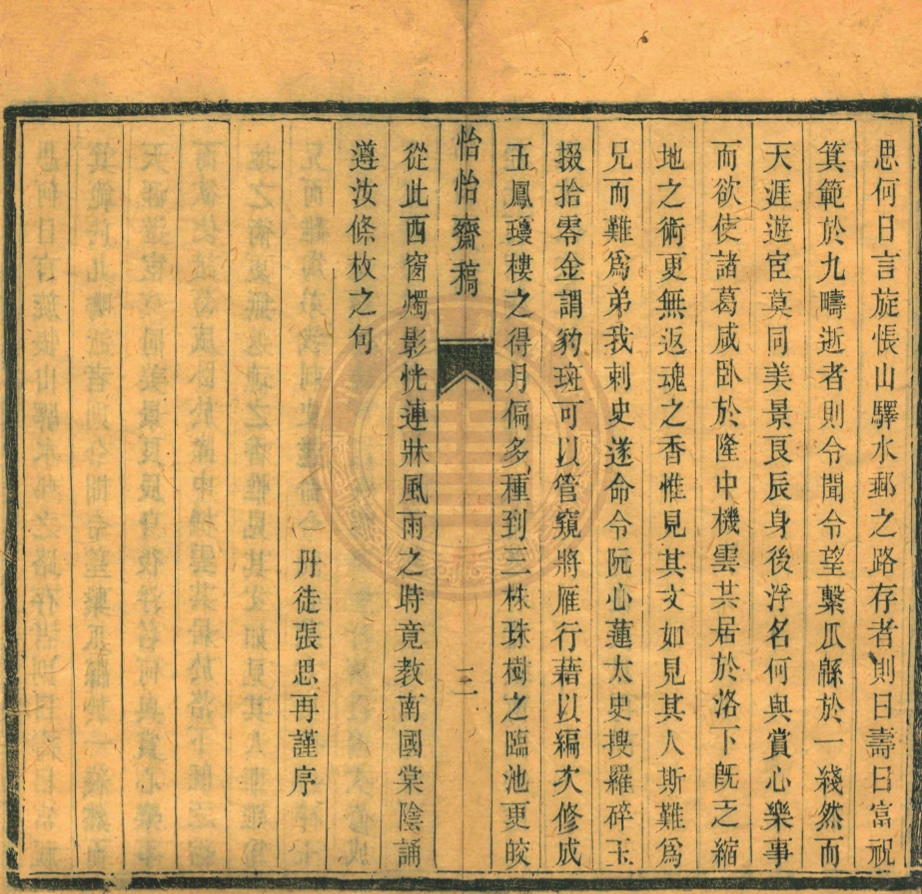 思何日言旋悵山驛水郵之路存者則曰壽曰富祝
箕範於九疇逝者則令聞令望繫瓜緜於一綫然而
天涯遊宦莫同美景良辰身後浮名何與賞心樂事
而欲使諸葛咸卧於隆中機雲共居於洛下既乏縮
地之術更無返魂之香惟見其文如見其人斯難爲
兄而難爲弟我刺史遂命令阮心蓮太史搜羅碎玉
掇拾零金謂豹斑可以管窺將雁行藉以編次修成
五鳳瓊樓之得月偏多種到三株珠樹之臨池更皎
怡怡齋稿
三
從此西窗燭影恍連牀風雨之時竟教南國棠陰誦
遵汝條枚之句
丹徒張思再謹序